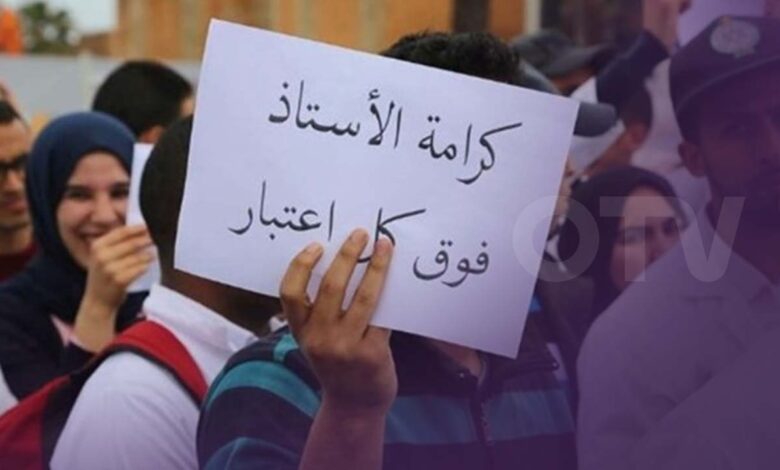 كرامة الأستاذ
فوق كل اعتبار
OTV